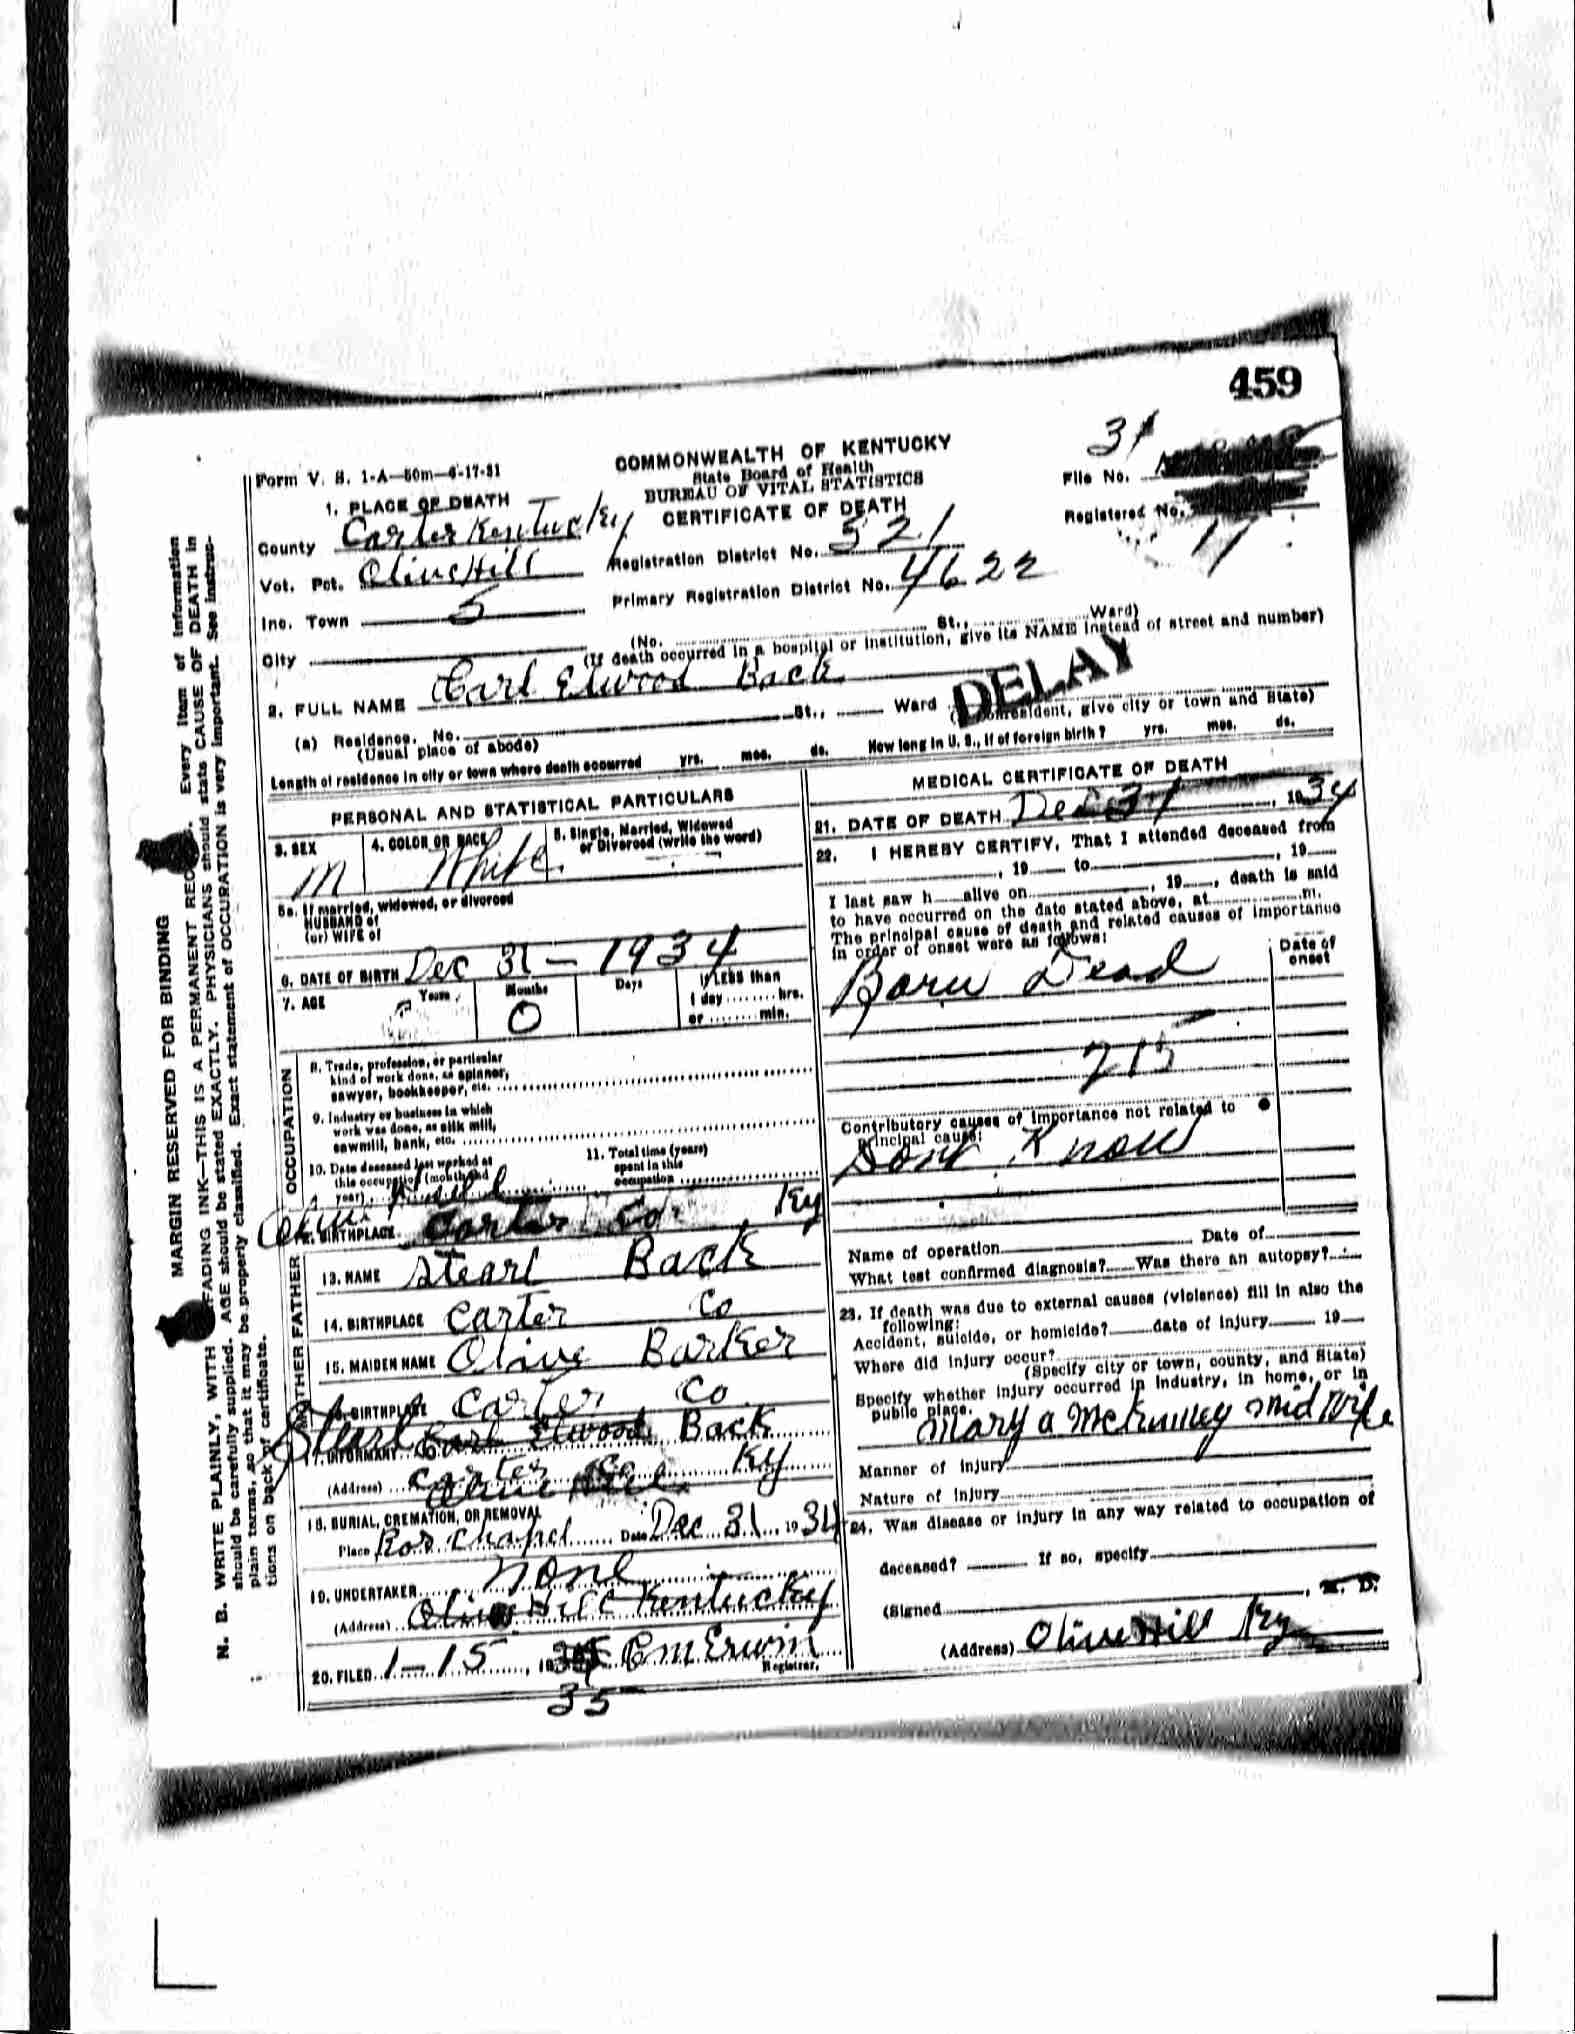 459
Form V. S. 1-A—50m—4-17-31
COMMONWEALTH OF KENTUCKY
State Board of Health
BUREAU OF VITAL STATISTICS
CERTIFICATE OF DEATH
31
File No.
Registered No.
11
1. PLACE OF DEATH
County Carter Kentucky
Vot. Pct. Olive Hill
Inc. Town 5
City
Registration District No. 521
Primary Registration District No. 4622
(No. St., Ward)
(If death occurred in a hospital or institution, give its NAME instead of street and number)
2. FULL NAME Carl Elwood Back
DELAY
(a) Residence. No. St., Ward
(Usual place of abode) (If nonresident, give city or town and State)
Length of residence in city or town where death occurred yrs. mos. ds. How long in U. S., if of foreign birth? yrs. mos. ds.
PERSONAL AND STATISTICAL PARTICULARS
3. SEX M
4. COLOR OR RACE White.
5. Single, Married, Widowed
or Divorced (write the word)
5a. If married, widowed, or divorced
HUSBAND of
(or) WIFE of
6. DATE OF BIRTH Dec 31 — 1934
7. AGE Years Months Days If LESS than
0
1 day ........ hrs.
or ........ min.
OCCUPATION
8. Trade, profession, or particular
kind of work done, as spinner,
sawyer, bookkeeper, etc.
9. Industry or business in which
work was done, as silk mill,
sawmill, bank, etc.
10. Date deceased last worked at
this occupation (month and
year)
11. Total time (years)
spent in this
occupation
Olive Hill
12. BIRTHPLACE Carter Co Ky
FATHER
13. NAME Stearl Back
14. BIRTHPLACE Carter Co
MOTHER
15. MAIDEN NAME Olive Barker
16. BIRTHPLACE Carter Co
17. INFORMANT Stearl Carl Elwood Back
(Address) Carter Co Ky
Olive Hill
18. BURIAL, CREMATION, OR REMOVAL
Place Ros Chapel Date Dec 31 1934
19. UNDERTAKER none
(Address) Olive Hill Kentucky
20. FILED 1—15, 19 C M Erwin
Registrar.
35
MEDICAL CERTIFICATE OF DEATH
21. DATE OF DEATH Dec 31, 1934
22. I HEREBY CERTIFY, That I attended deceased from
, 19 to , 19
I last saw h alive on , 19 , death is said
to have occurred on the date stated above, at m.
The principal cause of death and related causes of importance
in order of onset were as follows:
Date of
onset
Born Dead
215
Contributory causes of importance not related to
principal cause:
Dont Know
Name of operation Date of
What test confirmed diagnosis? Was there an autopsy?
23. If death was due to external causes (violence) fill in also the
following:
Accident, suicide, or homicide? date of injury 19
Where did injury occur?
(Specify city or town, county, and State)
Specify whether injury occurred in industry, in home, or in
public place.
Mary a McKinney mid Wife
Manner of injury
Nature of injury
24. Was disease or injury in any way related to occupation of
deceased? If so, specify
(Signed , M. D.
(Address) Olive Hill Ky
MARGIN RESERVED FOR BINDING
N. B. WRITE PLAINLY, WITH UNFADING INK—THIS IS A PERMANENT RECORD. Every item of information
should be carefully supplied. AGE should be stated EXACTLY. PHYSICIANS should state CAUSE OF DEATH in
plain terms, so that it may be properly classified. Exact statement of OCCUPATION is very important. See instruc-
tions on back of certificate.